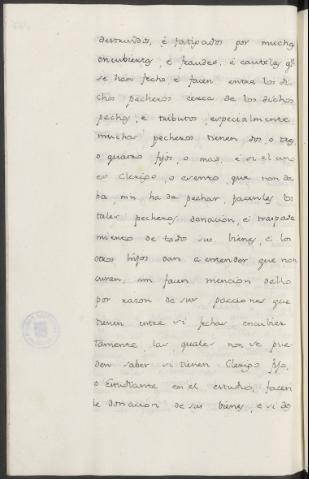 destruidos, é fatigados por muchos
encubiertos, é fraudes, é cautelas qe
se han fecho é facen entre los di-
chos pecheros cerca de los dichos
pechos, é tributos, especialmente
muchos pecheros tienen dos, o tres,
o quatro fijos, o mas, é si el uno
es Clerigo, o esento, que non de-
ba, nin ha de pechar, facenles los
tales pecheros donacion, é traspasa-
miento de todos sus bienes, é los
otros hijos dan a entender que non
curen, nin facen mencion dello
por razon de sus pacciones que
tienen entre si fechas encubier-
tamente, las quales non se pue-
den saber si tienen Clerigo fijo,
o Estudiante en el estudio, facen-
le donacion de sus bienes, é si do